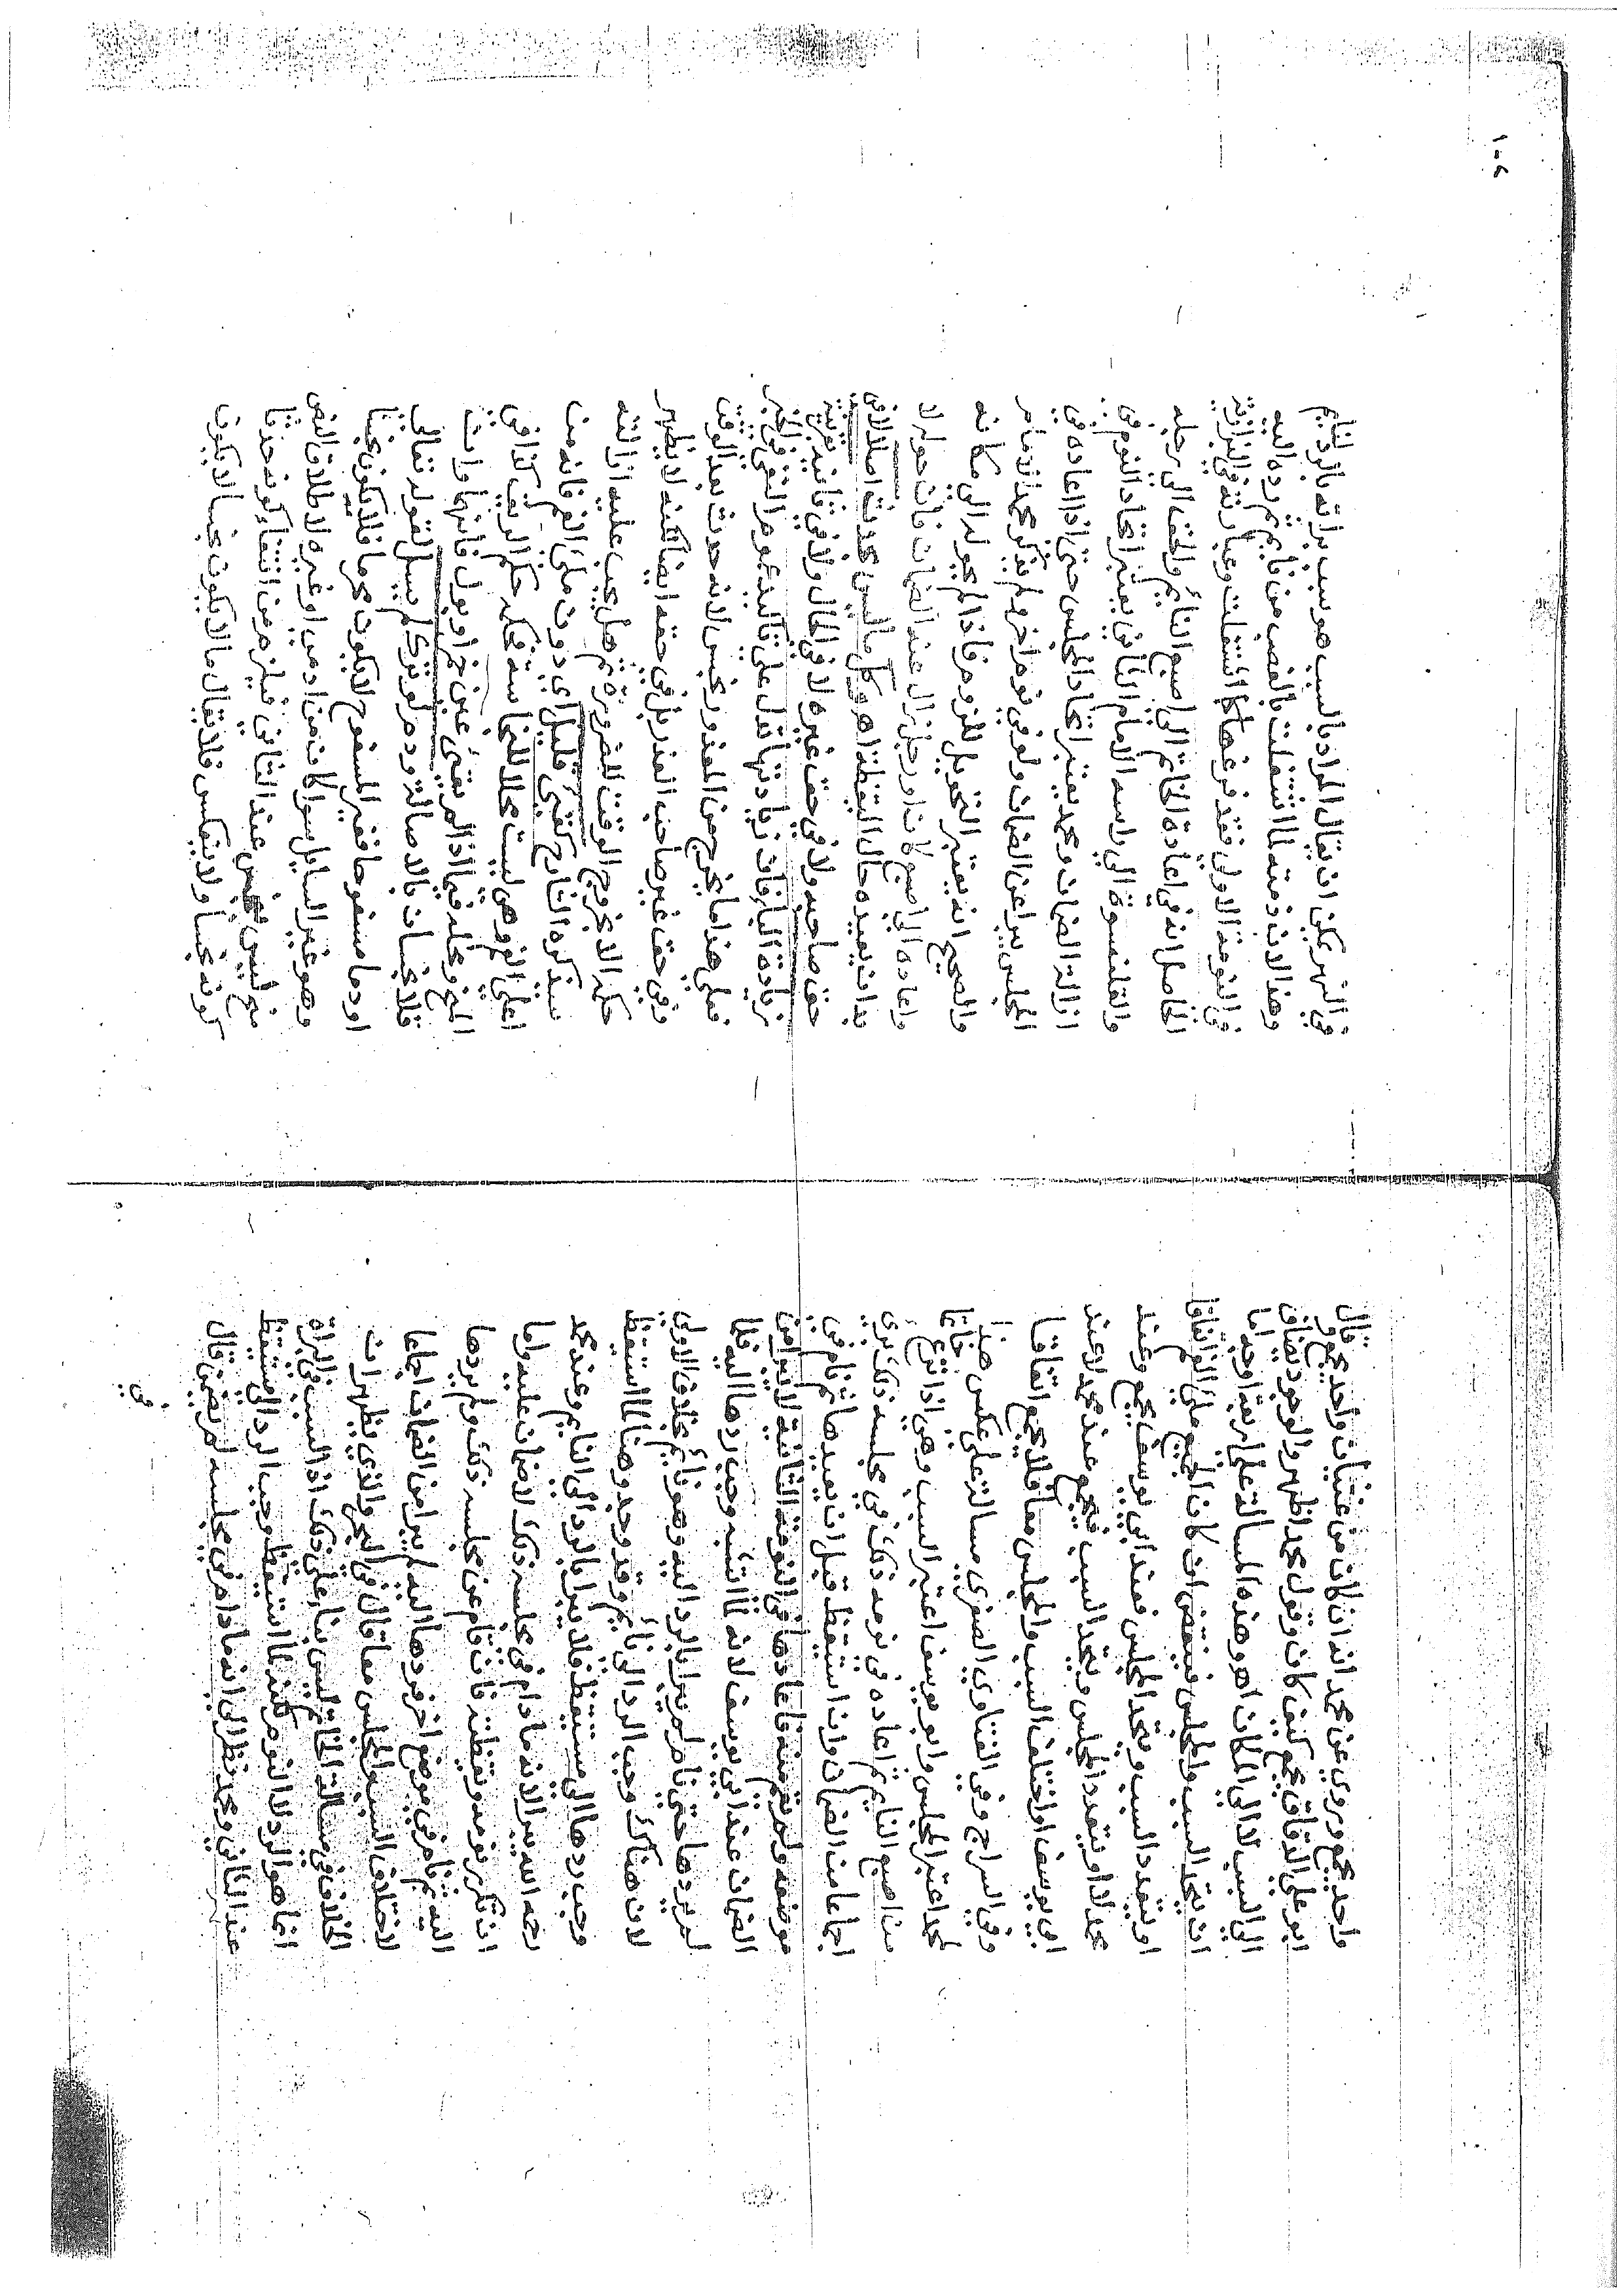 واحد يجمع وروي عن محمد انه ان كان من غثيان واحد يجمع وقال
ابو علي الدقاق يجمع كيف كان وقول محمد اظهر والوجود يضاف
الي السبب لا الي المكان اهـ وهذه المسالة على اربعة اوجه اما
ان يتحد السبب والمجلس فينقض ان كان الجميع ملئ الفم اتفاقا
او يتعدد السبب ويتحد المجلس فعند ابي يوسف يجمع وعند
محمد لا او يتعدد المجلس ويتحد السبب فيجمع عند محمد لا عند
ابي يوسف او اختلف السبب والمجلس معا فلا يجمع اتفاقا
وفي السراج وفي الفتاوي الصغري مسالة على عكس هذا
محمد اعتبر المجلس وابو يوسف اعتبر السبب وهي اذا نزع خاتما
من اصبع النائم ثم اعاده في نومه ذلك في مجلسه ذلك بري
اجماعا من الضمان وان استيقظ قبل ان يعيدها ثم نام في
موضعه ولم يقم منه فاعادها في النومة الثانية لا يبرا من
الضمان عند ابي يوسف لانه لما انتبه وجب ردها اليه فلما
لم يردها حتى نام لم يبرا بالرد اليه وهو نائم بخلاف الاولى
لان هناك وجب الرد الى نائم وقد وجد وهنا لما استيقظ
وجب ردها الي مستيقظ فلا يبرا بالرد الي النائم وعند محمد
رحمه الله يبرا لانه ما دام في مجلسه ذلك لا ضمان عليه واما
ان تكرر نومه ويقظته فان قام عن مجلسه ذلك ولم يردها
اليه ثم نام في موضع اخر فردها اليه لم يبرا من الضمان اجماعا
لاختلاف السبب والمجلس معا قال في البحر والذي يظهر ان
الخلاف في مسالة الخاتم ليس بناء على ذلك اذ السبب في البراة
انما هو الرد لا النوم لكنه لما استيقظ وجب الرد الى مستيقظ
عند الثاني ومحمد نظر الى انه ما دام في مجلسه لم يضمن قال
في
في النهر يمكن ان يقال المراد بالسبب هو سبب براته بالرد للنائم
وهذا لان ذمته لما اشتغلت بالغصب من نائم ثم رده اليه
في النومة الاولى فقد فرغها كما اشتغلت وعبارته في البزازية
الحاصل انه في اعادة الخاتم الي اصبع النائم والخف الي رجله
والقلنسوة الي راسه الامام الثاني يعتبر اتحاد النوم في
ازالة الضمان ومحمد يعتبر اتحاد المجلس حتى اذا اعاده في
المجلس يبرا عن الضمان ولو في نوم اخر ولم يذكر محمد الامام
والصحيح انه يعتبر التحويل للزوم فاذا لم يحوله الى مكانه
واعاده الي اصبع كان او رجل زال عنه الضمان فان حوله لا
بد ان يعيده حال اليقظة اهـ وكل ما ليس بحدث اصلا لا في
حق صاحبه ولا في حق غيره لا في الحال ولا في ثانيه بقرينة
زيادة الباء فان زيادتها تدل على تاكيد عموم النفي في الخبر
فعلى هذا ما يخرج من المعذور نجس لانه حدث بعد الوقت
وفي حق غير صاحب العذر بل في حقه ايضا لكنه لا يظهر
حكمه الا بخروج الوقت للضرورة ثم هل يجب عليه ازالته
سيذكره الشارح كقيء قليل اي دون ملئ الفم فانه من
اعلي الفم وهي ليست محلا للنجاسة فحكمه حكم الريق كذا في
المنح ومحله فيما اذا لم يقيء عين خمر او بول فانها وان
قلا نجسان بالاصالة ودم لو ترك لم يسل لقوله تعالى
او دما مسفوحا فغير المسفوح لا يكون محرما فلا يكون نجسا
وهو غير السايل سوا كان من ادمي او غيره لاطلاق النص
منح ليس بنجس عند الثاني فيلزم من انتفاء كونه حدثا
كونه نجسا ولا ينعكس فلا يقال ما لا يكون نجسا لا يكون